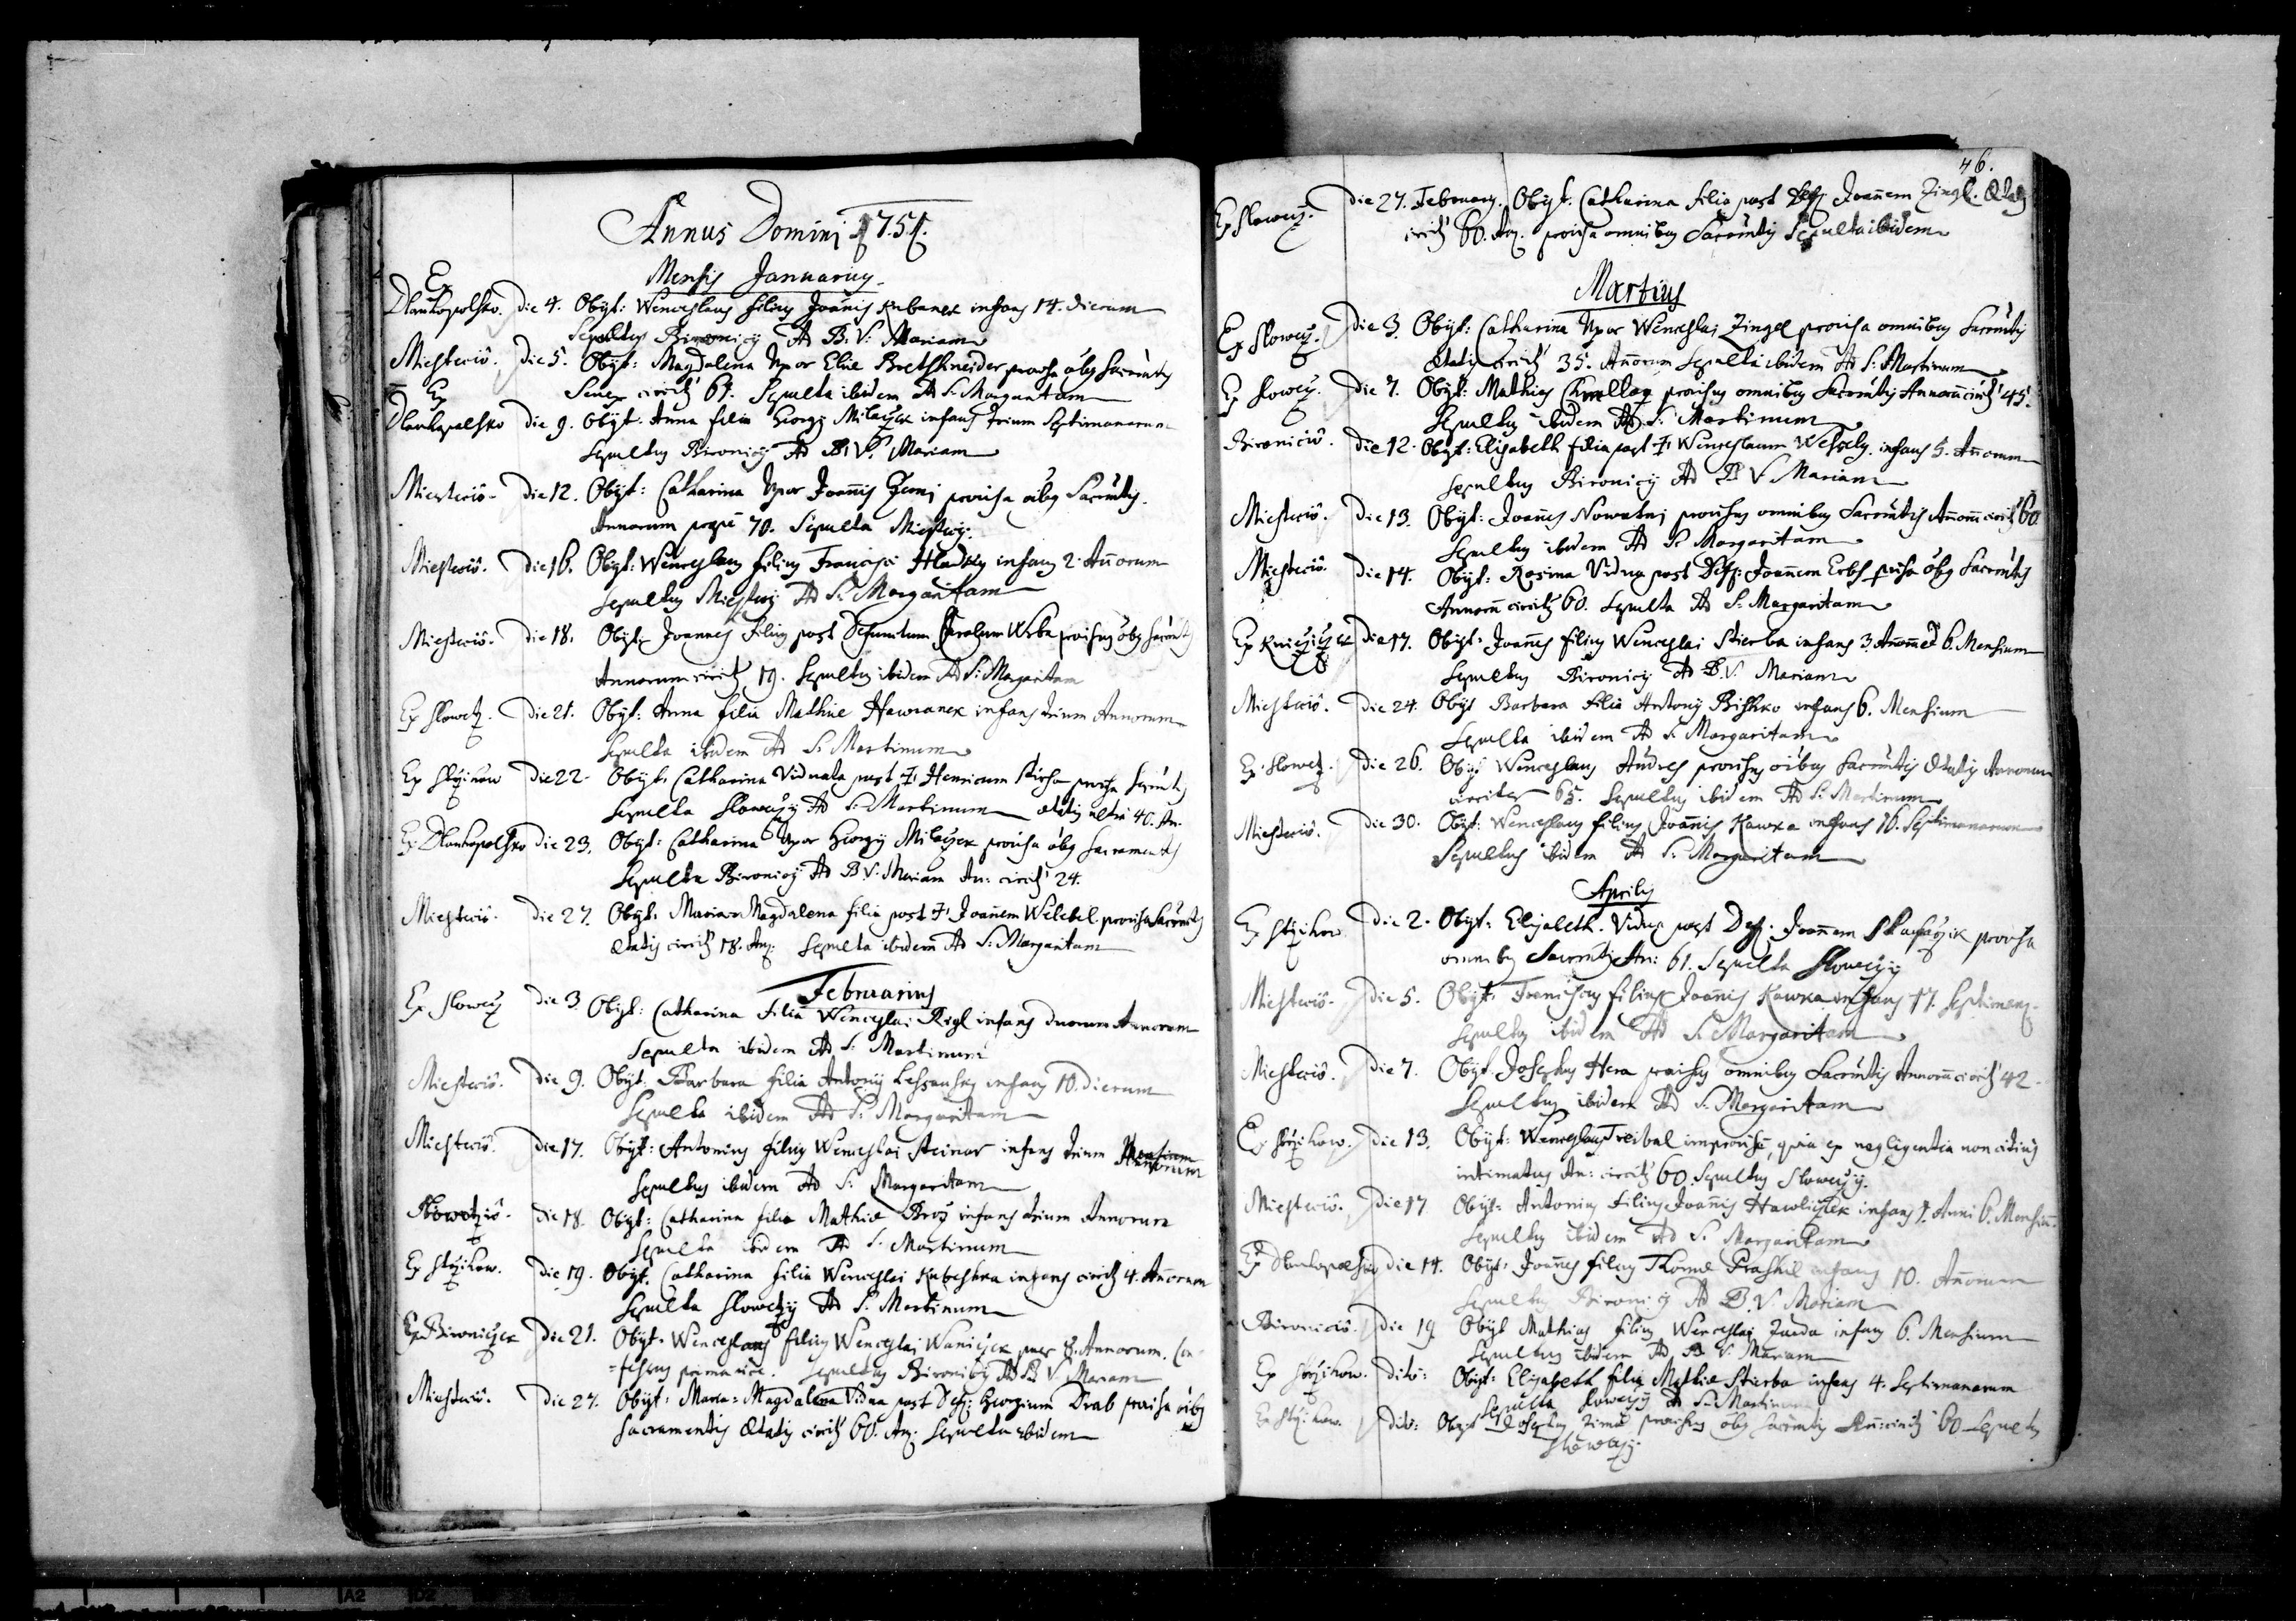 Annus Domini 1751.
Mensis Januarius
Ex
Dlauhopolsko. Die 4. Obijt: Wenceslaus filius Joannis Kubanek infans 14. dierum
Sepultus Bironicij Ad B: V: Mariam
Miesteciô. Die 5. Obijt: Magdalena Uxor Eliae Bretshneider provisa oîbg Sacrmtis
Senex circitr 61. Sepulta ibidem Ad S: Margaritam
Ex
Dlauhopolsko die 9. Obijt: Anna filia Georgij Milaczek infans trium Septimanarum
Sepultus Bironicij Ad B: V: Mariam
Miesteciô. Die 12. Obijt: Catharina Uxor Joannis provisa oîbg Sacrmtis.
Annorum prope 70. Sepulta Miestecij.
Miesteciô. Die 16. Obijt: Wenceslaus filius Francisci Hladky infans 2. Añorum
Sepultus Miestecij Ad S: Margaritam
Miesteciô. Die 18. Obijt Joannes filius post Defunctum Carolum Wrba provisus oîbg Sacrmtis
Annorum circitr 19. Sepultus ibidem Ad S: Margaritam
Ex Slowcz. Die 21. Obijt: Anna filia Mathiae Hawranek infans trium Annorum
Sepulta ibidem Ad S: Martinum
Ex Strzikow Die 22. Obijt: Catharina Viduata post Henricum provisa Sacrmtis
Sepulta Slowczij Ad S: Martinum aetatis ultra 40. An.
Ex Dlauhopolsko die 23. Obijt: Catharina Uxor Georgij Milaczek provisa oîbg Sacramentis
Sepulta Bironicij Ad B: V: Mariam An: circitr 24.
Miesteciô. Die 27. Obijt: Maria Magdalena filia post Joañem Welebil provisa Sacrmtis
Aetatis circitr 18. An: Sepulta ibidem Ad S: Margaritam
Februarius
Ex Slowcz Die 3. Obijt: Catharina filia Wenceslai Rigl infans duorum Annorum
Sepulta ibidem Ad S: Martinum
Miesteciô. Die 9. Obijt: Barbara filia Antonij infans 10. dierum
Sepulta ibidem Ad S: Margaritam
Miesteciô. Die 17. Obijt: Antonius filius Wenceslai Steinar infans trium Annorum
Sepultus ibidem Ad S: Margaritam
Slowcziô. Die 18. Obijt: Catharina filia Mathiae Broz infans trium Annorum
Sepulta ibidem Ad S: Martinum
Ex Strzikow. Die 19. Obijt: Catharina filia Wenceslai Kubeshka infans circitr 4. Añorum
Sepulta Slowczij Ad S: Martinum
Ex Bironiczek Die 21. Obijt: Wenceslaus filius Wenceslai Waniczek puer 8. Annorum. Con
=fessus prima vice. Sepultus Bironicij Ad B V: Mariam
Miesteciô. Die 27. Obijt: Maria=Magdalena Vidua post Def: Georgium Drab provisa oîbg
Sacramentis Aetatis circitr 60. An: Sepulta ibidem
46.
Ex Slowcz. Die 27. Februarij. Obijt: Catharina filia post Def: Joañem Zingl. Aetatis
circitr 60. An: provisa omnibus Sacrmtis Sepulta ibidem
Martius
Ex Slowcz. Die 3. Obijt: Catharina Uxor Wenceslai Zingel provisa omnibus Sacrmtis
Aetatis circitr 35. Añorum Sepulta ibidem Ad S: Martinum
Ex Slowcz. Die 7. Obijt: Mathias provisus omnibus Sacrmtis Annorum circitr 45.
Sepultus ibidem Ad S: Martinum
Bironiciô. Die 12. Obijt: Elisabeth filia post Wenceslaum Wessely infans 5. Añorum
Sepultus Bironicij Ad B V Mariam
Miesteciô. Die 13. Obijt: Joannes Nowotny provisus omnibus Sacrmtis Añorum circitr 60
Sepultus ibidem Ad S: Margaritam
Miesteciô. Die 14. Obijt: Rosina Vidua post Def: Joannem Erbs provisa oîbg Sacrmtis
Annorum circitr 60. Sepulta Ad S: Margaritam
Ex Kniczicek Die 17. Obijt: Joannes filius Wenceslai Stierba infans 3. Añorum et 6. Mensium
Sepultus Bironicij Ad B. V. Mariam
Miesteciô. Die 24. Obijt Barbara filia Antonij Bishko infans 6. Mensium
Sepulta ibidem Ad S: Margaritam
Ex Slowcz. Die 26. Obijt Wenceslaus Andres provisus oîbus Sacrmtis Aetatis Annorum
circiter 65. Sepultus ibidem Ad S: Martinum
Miesteciô. Die 30. Obijt: Wenceslaus filius Joannis Kawka infans 16. Septimanarum
Sepultus ibidem Ad S: Margaritam
Aprilis
Ex Strzikow Die 2. Obijt: Elisabeth Vidua post Def: Joannem provisa
omnibus Sacrmtis An: 61. Sepulta Slowczij
Miesteciô. Die 5. Obijt: Franciscus filius Joannis Kawka infans 17. Septimanarum
Sepultus ibidem Ad S: Margaritam
Miesteciô. Die 7. Obijt Josephus Hera provisus omnibus Sacrmtis Annorum circitr 42.
Sepultus ibidem Ad S: Margaritam
Ex Strzikow. Die 13. Obijt: Wenceslaus Treibal improvisus, quia ex negligentia non citius
intimatus An: circitr 60. Sepultus Slowczij.
Miesteciô. Die 17 Obijt: Antonius filius Joannis Hawliczek infans 1. Anni 6. Mensium.
Sepultus ibidem Ad S: Margaritam
Ex Dlauhopolsko die 14. Obijt: Joannes filius Thomae Prashil infans 10. Añorum
Sepultus Bironicij Ad B. V. Mariam
Bironiciô. Die 19 Obijt Mathias filius Wenceslai infans 6. Mensium
Sepultus ibidem Ad B V: Mariam
Ex Strzikow. Dito: Obijt: Elisabeth filia Mathiae Stierba infans 4. Septimanarum
Sepulta Slowczij Ad S: Martinum
Ex Strzikow. Dito: Obijt Josephus Zima provisus oîbg Sacrmtis An: circitr 60 Sepultus
Slowczij.